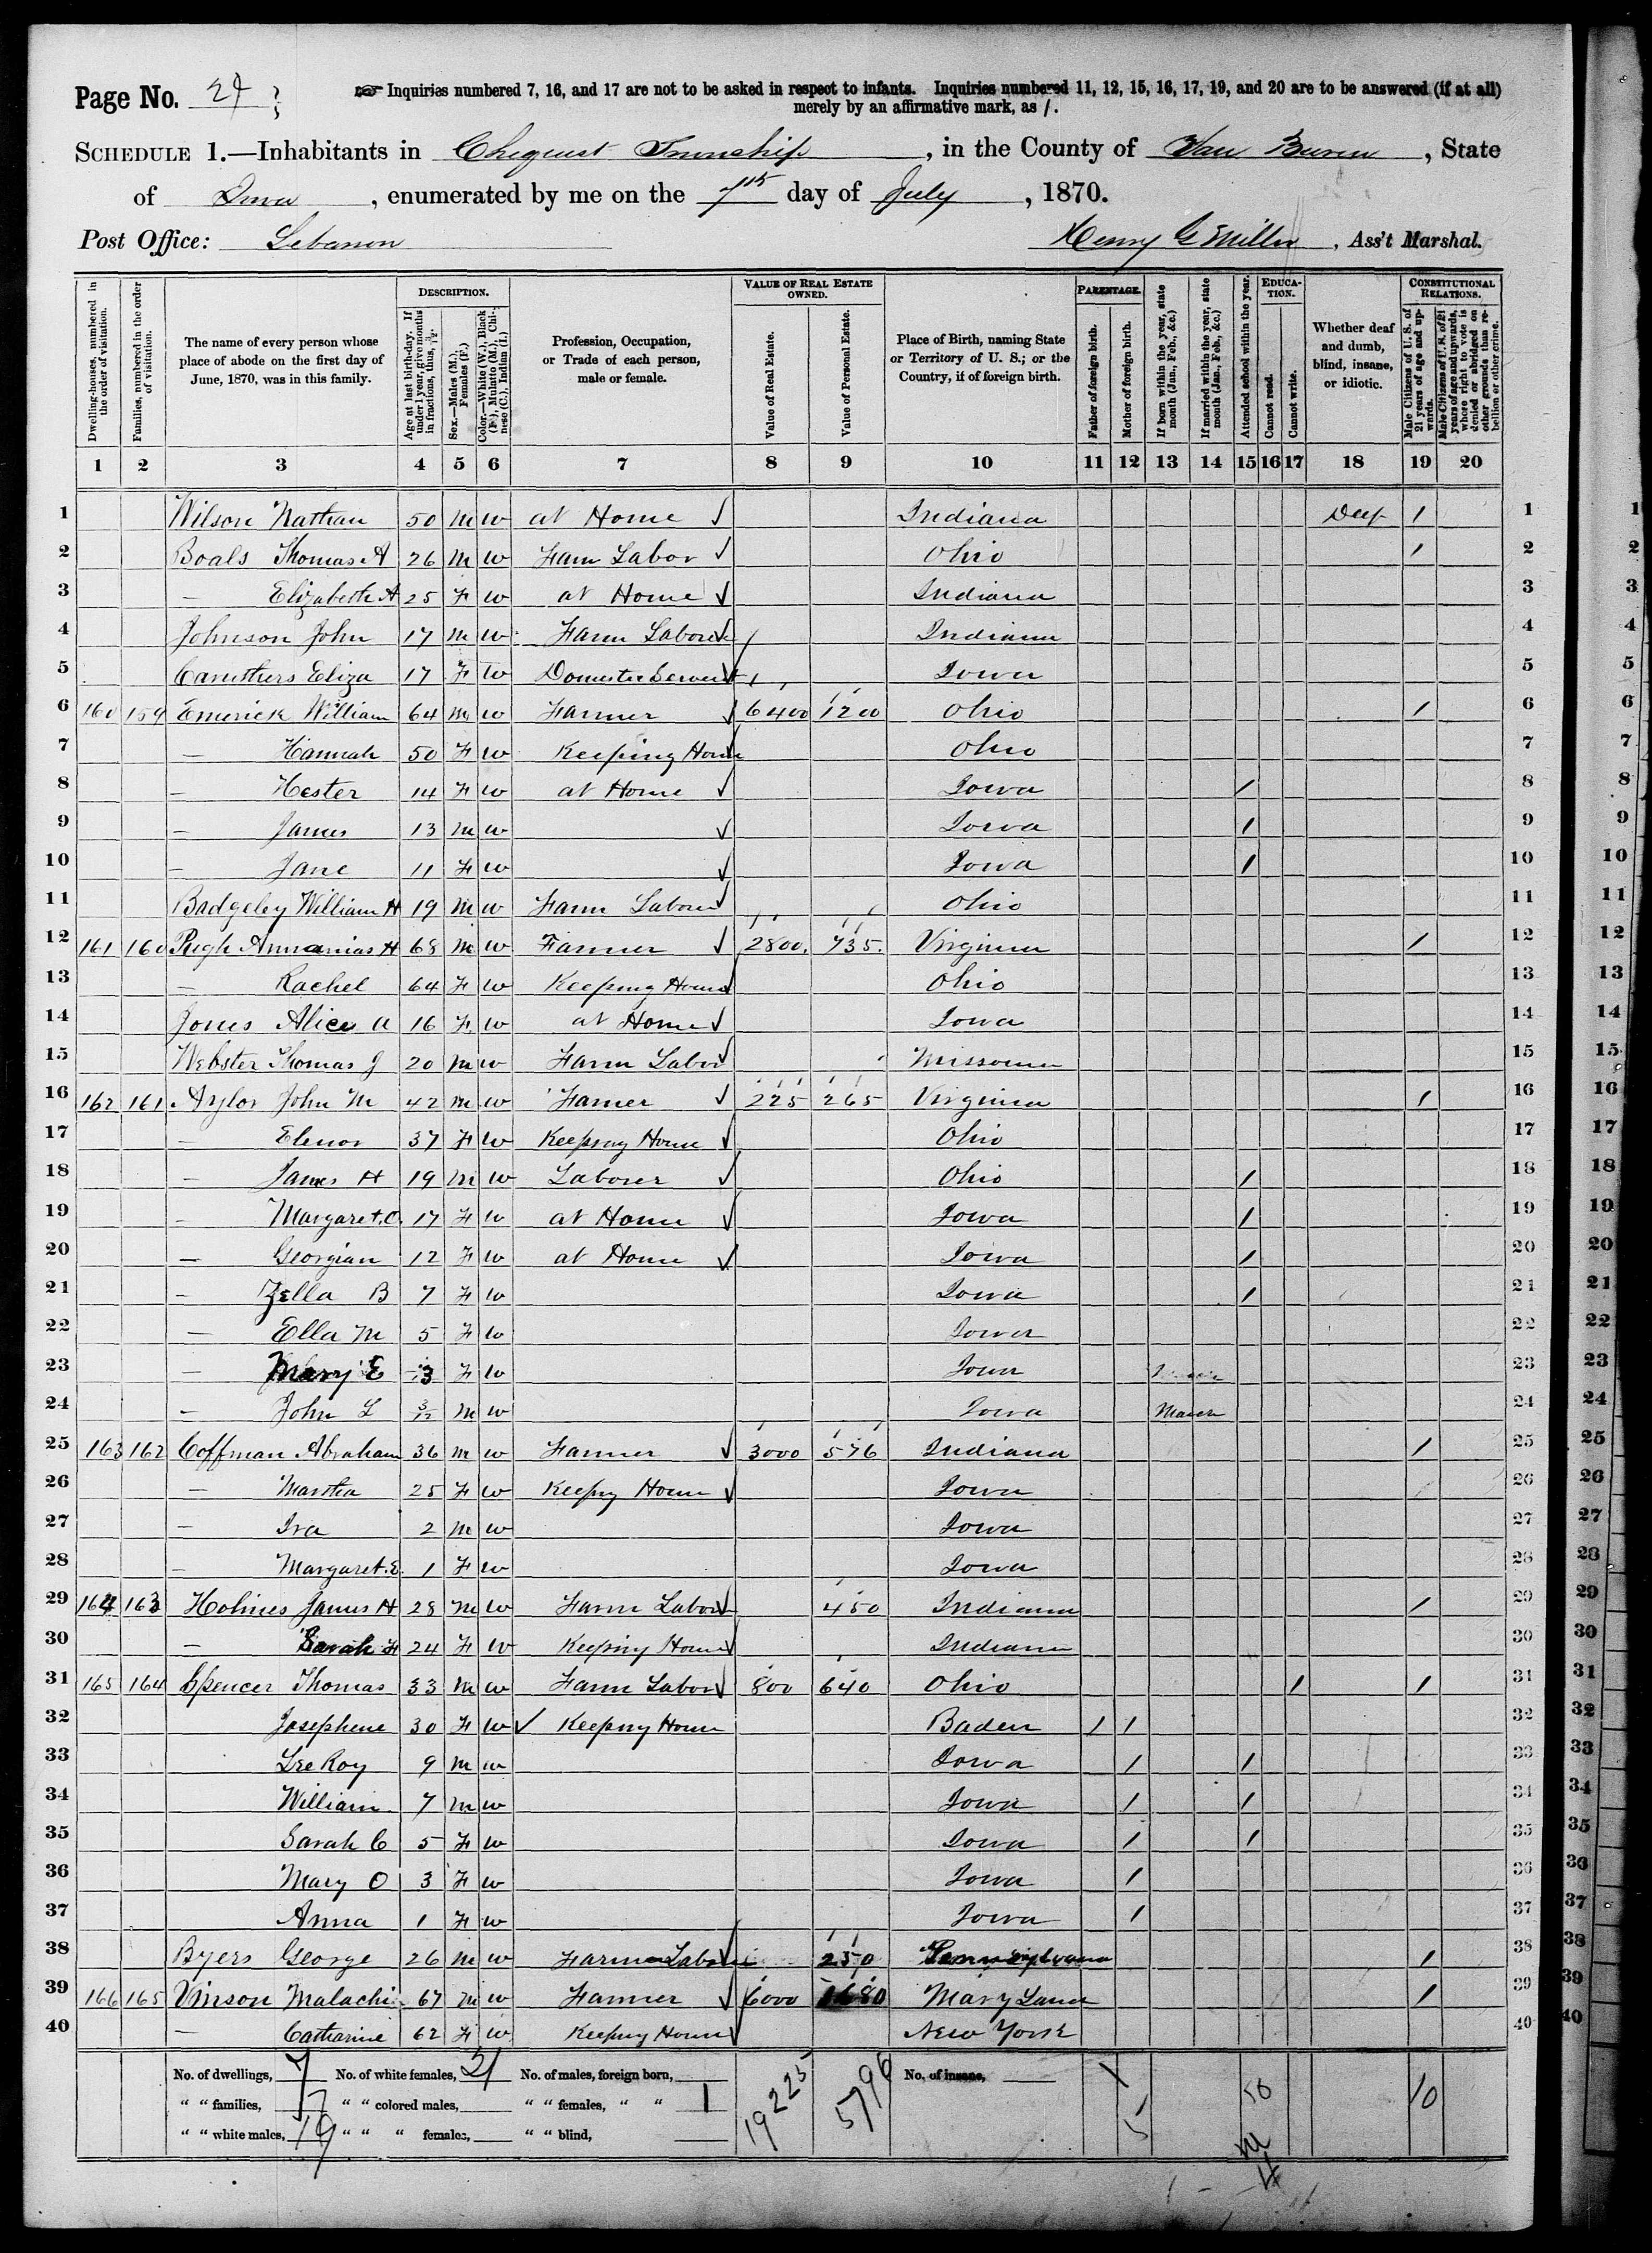 Page No. 21
Inquiries numbered 7, 16, and 17 are not to be asked in respect to infants. Inquiries numbered 11, 12, 15, 16, 17, 19, and 20 are to be answered (if at all)
merely by an affirmative mark, as /.
SCHEDULE 1.—Inhabitants in Chequest Township, in the County of Van Buren, State
of Iowa, enumerated by me on the 7th day of July, 1870.
Post Office: Lebanon
Henry G Miller, Ass't Marshal.
Dwelling-houses, numbered in the order of visitation.
Families, numbered in the order of visitation.
The name of every person whose place of abode on the first day of June, 1870, was in this family.
DESCRIPTION.
Age at last birth-day. If under 1 year, give months in fractions, thus, 3/12.
Sex.—Males (M.), Females (F.)
Color.—White (W.), Black (B.), Mulatto (M.), Chinese (C.), Indian (I.)
Profession, Occupation, or Trade of each person, male or female.
VALUE OF REAL ESTATE OWNED.
Value of Real Estate.
Value of Personal Estate.
Place of Birth, naming State or Territory of U. S.; or the Country, if of foreign birth.
PARENTAGE.
Father of foreign birth.
Mother of foreign birth.
If born within the year, state month (Jan., Feb., &c.)
If married within the year, state month (Jan., Feb., &c.)
Attended school within the year.
EDUCATION.
Cannot read.
Cannot write.
Whether deaf and dumb, blind, insane, or idiotic.
CONSTITUTIONAL RELATIONS.
Male Citizens of U. S. of 21 years of age and upwards.
Male Citizens of U. S. of 21 years of age and upwards, whose right to vote is denied or abridged on other grounds than rebellion or other crime.
1 2 3 4 5 6 7 8 9 10 11 12 13 14 15 16 17 18 19 20
1 Wilson Nathan 50 M W at Home ✓ Indiana Deef / 1
2 Boals Thomas A 26 M W Farm Labor ✓ Ohio / 2
3 — Elizabeth A 25 F W at Home ✓ Indiana 3
4 Johnson John 17 M W Farm Laborer ✓ Indiana 4
5 Caruthers Eliza 17 F W Domestic Servent ✓ Iowa 5
6 160 159 Emerick William 64 M W Farmer ✓ 6400 1200 Ohio / 6
7 — Hannah 50 F W Keeping House ✓ Ohio 7
8 — Hester 14 F W at Home ✓ Iowa / 8
9 — James 13 M W ✓ Iowa / 9
10 — Jane 11 F W ✓ Iowa / 10
11 Badgeley William H 19 M W Farm Laborer ✓ Ohio 11
12 161 160 Pugh Annanias H 68 M W Farmer ✓ 2800. 735. Virginia / 12
13 — Rachel 64 F W Keeping House ✓ Ohio 13
14 Jones Alice A 16 F W at Home ✓ Iowa 14
15 Webster Thomas J 20 M W Farm Labor ✓ Missouri 15
16 162 161 Aylor John M 42 M W Farmer ✓ 225 265 Virginia / 16
17 — Elenor 37 F W Keeping House ✓ Ohio 17
18 — James H 19 M W Laborer ✓ Ohio / 18
19 — Margaret C. 17 F W at Home ✓ Iowa / 19
20 — Georgian 12 F W at Home ✓ Iowa / 20
21 — Zella B 7 F W Iowa / 21
22 — Ella M 5 F W Iowa 22
23 — Mary E 3 F W Iowa 23
24 — John L 3/12 M W Iowa March 24
25 163 162 Coffman Abraham 36 M W Farmer ✓ 3000 576 Indiana / 25
26 — Martha 25 F W Keeping House ✓ Iowa 26
27 — Ira 2 M W Iowa 27
28 — Margaret E. 1 F W Iowa 28
29 164 163 Holmes James H 28 M W Farm Labor ✓ 450 Indiana / 29
30 — Sarah F 24 F W Keeping House ✓ Indiana 30
31 165 164 Spencer Thomas 33 M W Farm Labor ✓ 800 640 Ohio / / 31
32 Josephene 30 F W ✓ Keeping House Baden / / 32
33 Lee Roy 9 M W Iowa / / 33
34 William 7 M W Iowa / / 34
35 Sarah C 5 F W Iowa / / 35
36 Mary O 3 F W Iowa / 36
37 Anna 1 F W Iowa / 37
38 Byers George 26 M W Farm Laborer ✓ 250 Pennsylvania / 38
39 166 165 Vinson Malachi 67 M W Farmer ✓ 6000 1680 Mary Land / 39
40 — Catharine 62 F W Keeping House ✓ New York 40
No. of dwellings, 7 No. of white females, 21 No. of males, foreign born, No. of insane,
" " families, 7 " " colored males, " " females, " " 1
" " white males, 19 " " " females, " " blind,
19225 5796 1 5 10 10
M
F